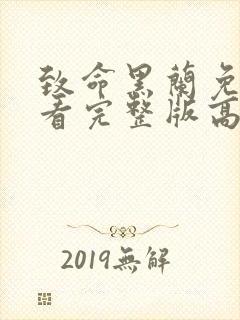 致命黑蘭免
看完整版高
2019無解